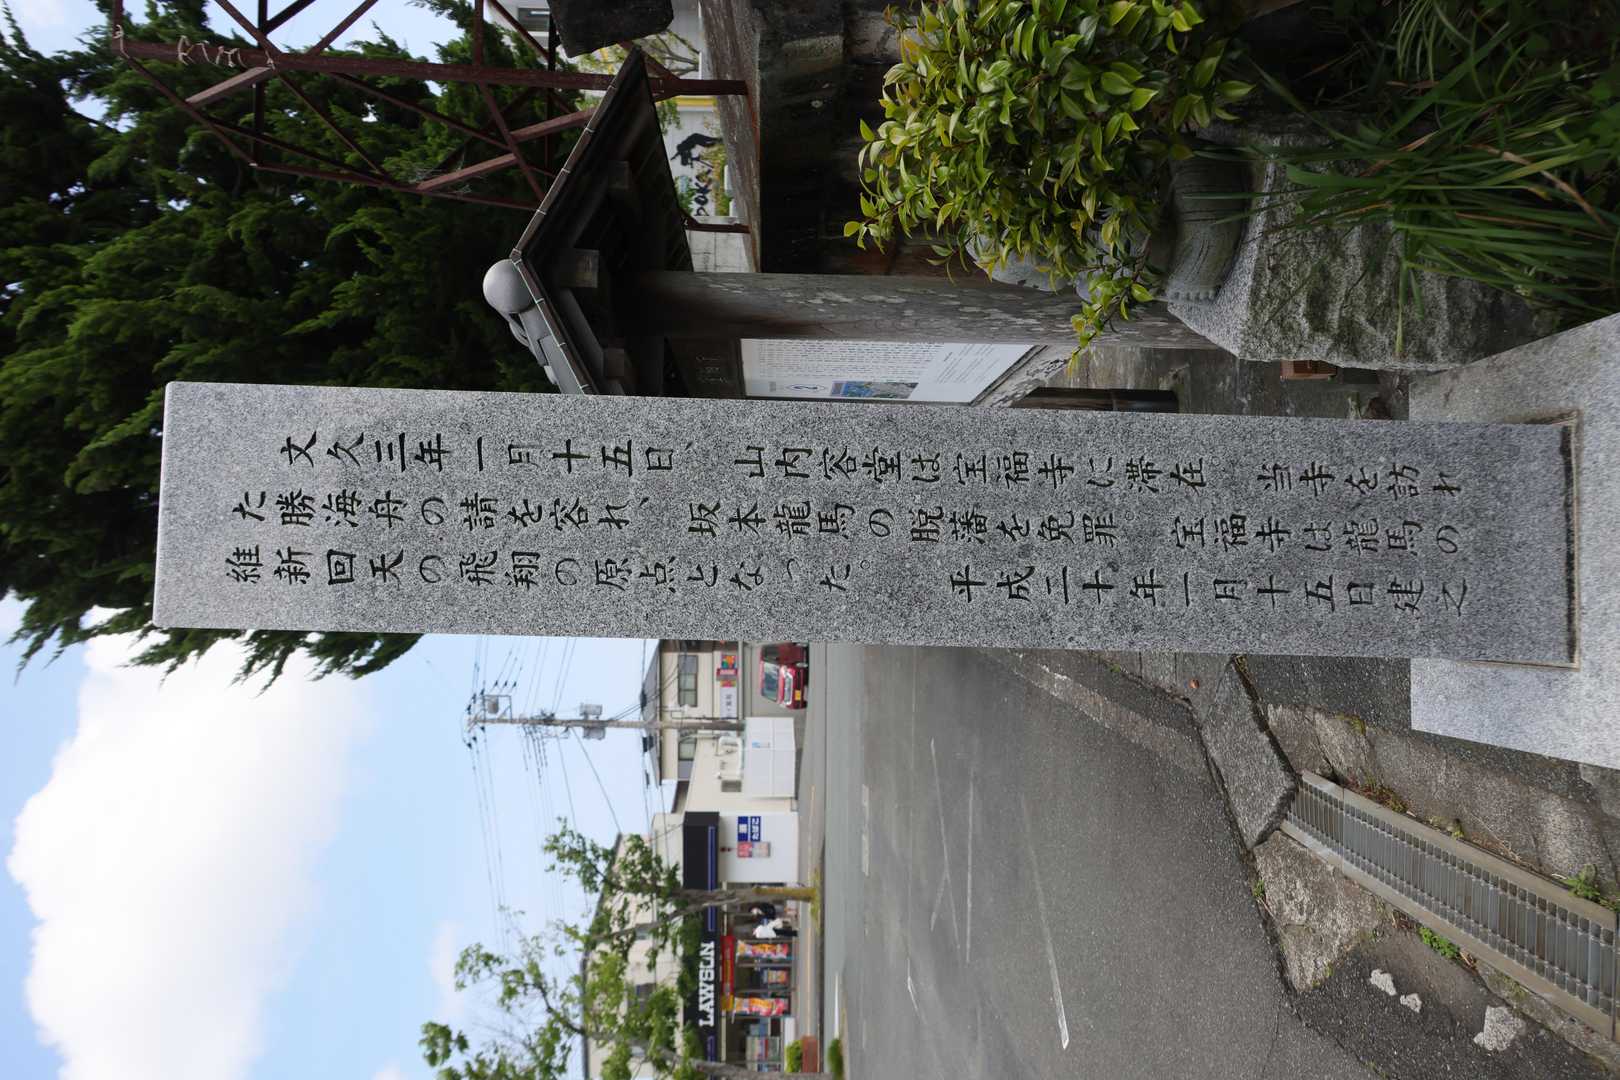 文久三年一月十五日、山内容堂は宝福寺に滞在。当寺を訪れ
た勝海舟の請を容れ、坂本龍馬の脱藩を免罪。宝福寺は龍馬の
維新回天の飛翔の原点となった。
平成二十年一月十五日建之
LAWSON
酒
たばこ
2